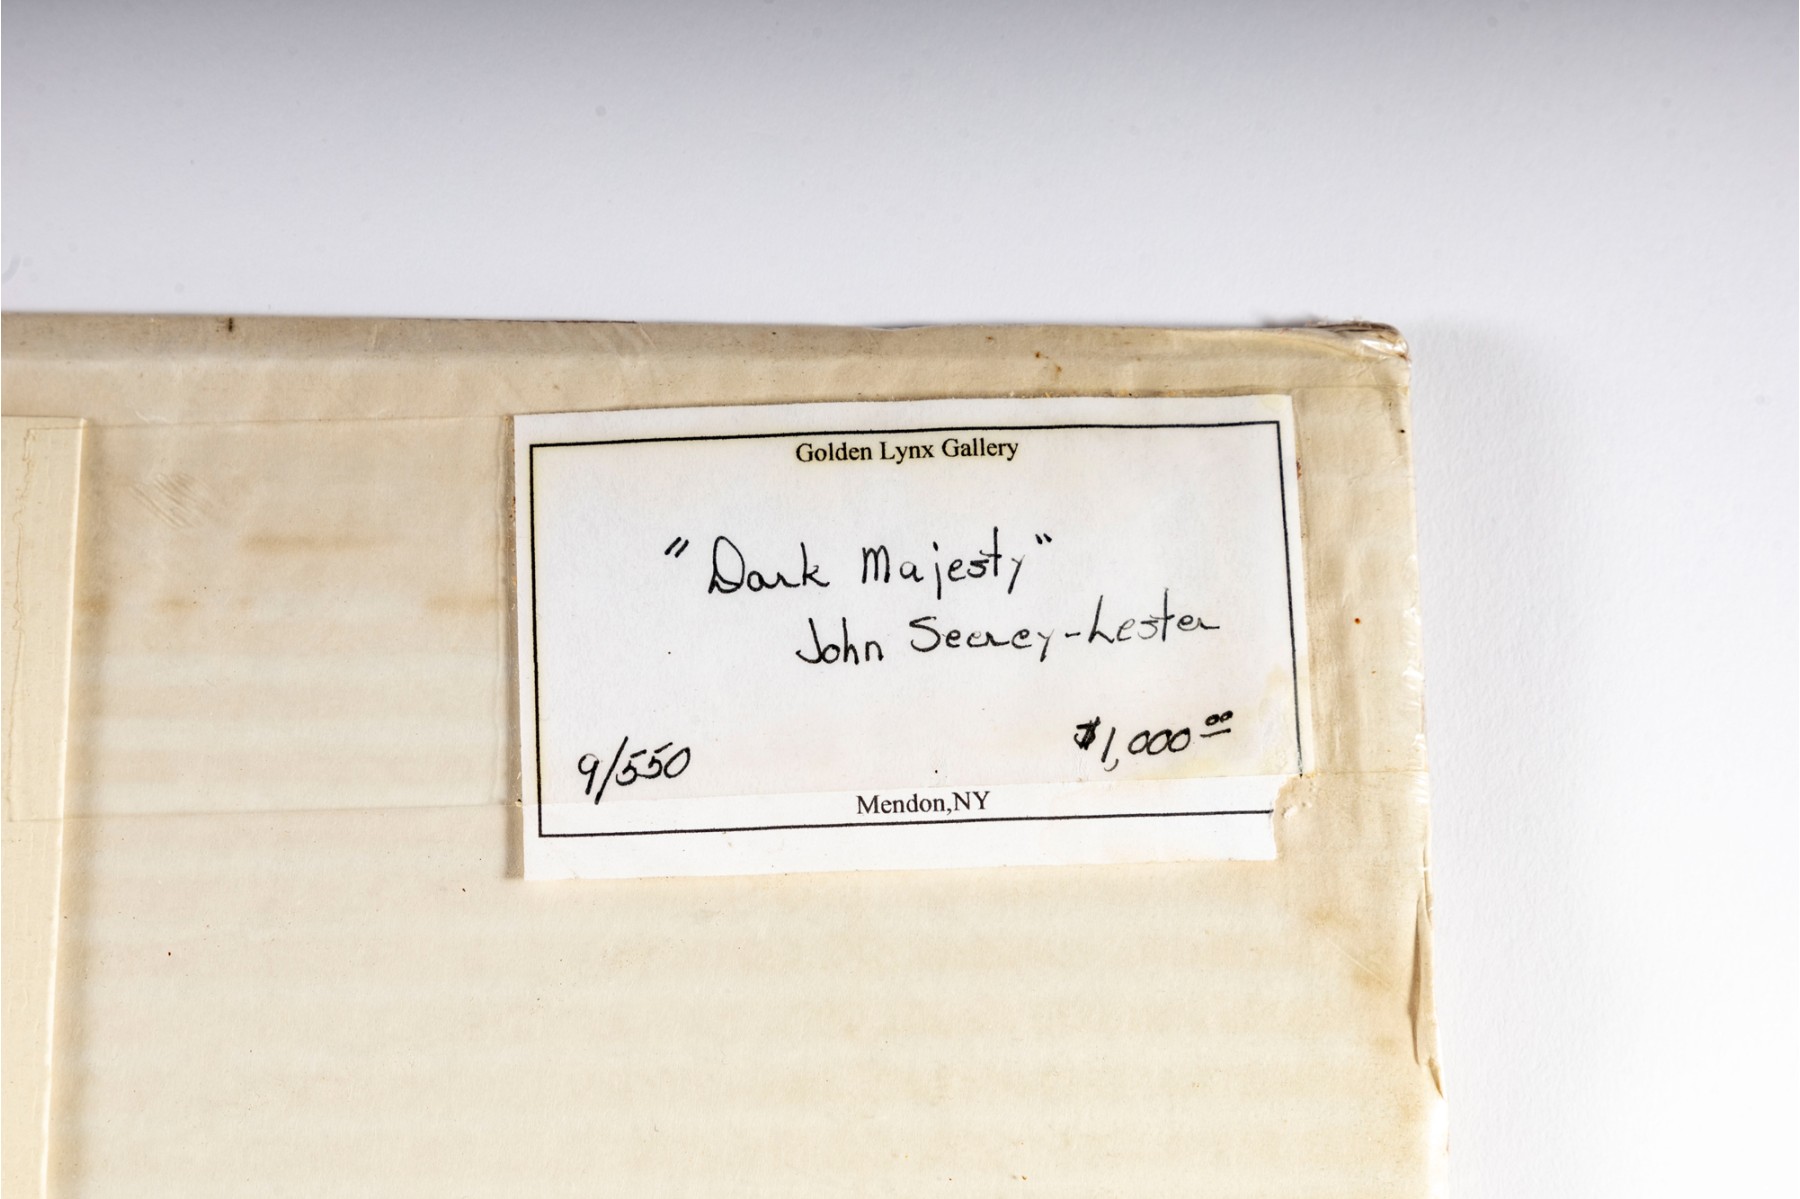 Golden Lynx Gallery
"Dark Majesty"
John Seerey-Lester
9/550 $1,000.00
Mendon,NY